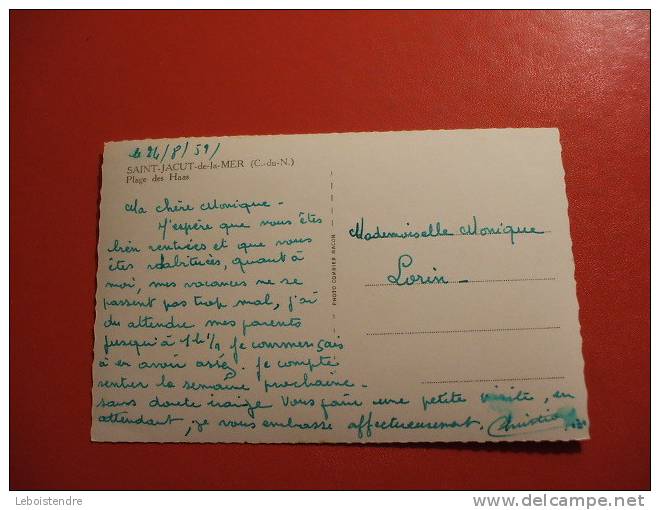 le 24/8/59/
SAINT-JACUT-de-la-MER (C.-du-N.)
Plage des Haas
Ma chère Monique -
J'espère que vous êtes
bien rentrées et que vous
êtes réabituées, quant à
moi, mes vacances ne se
passent pas trop mal, j'ai
du attendre mes parents
jusqu'à 1h½ je commençais
à en avoir assez. Je compte
rentrer la semaine prochaine -
sans doute iraije vous faire une petite visite, en
attendant, je vous embrasse affectueusement.
PHOTO COMBIER MACON
Mademoiselle Monique
Lorin -
Leboistendre
www.delcampe.net